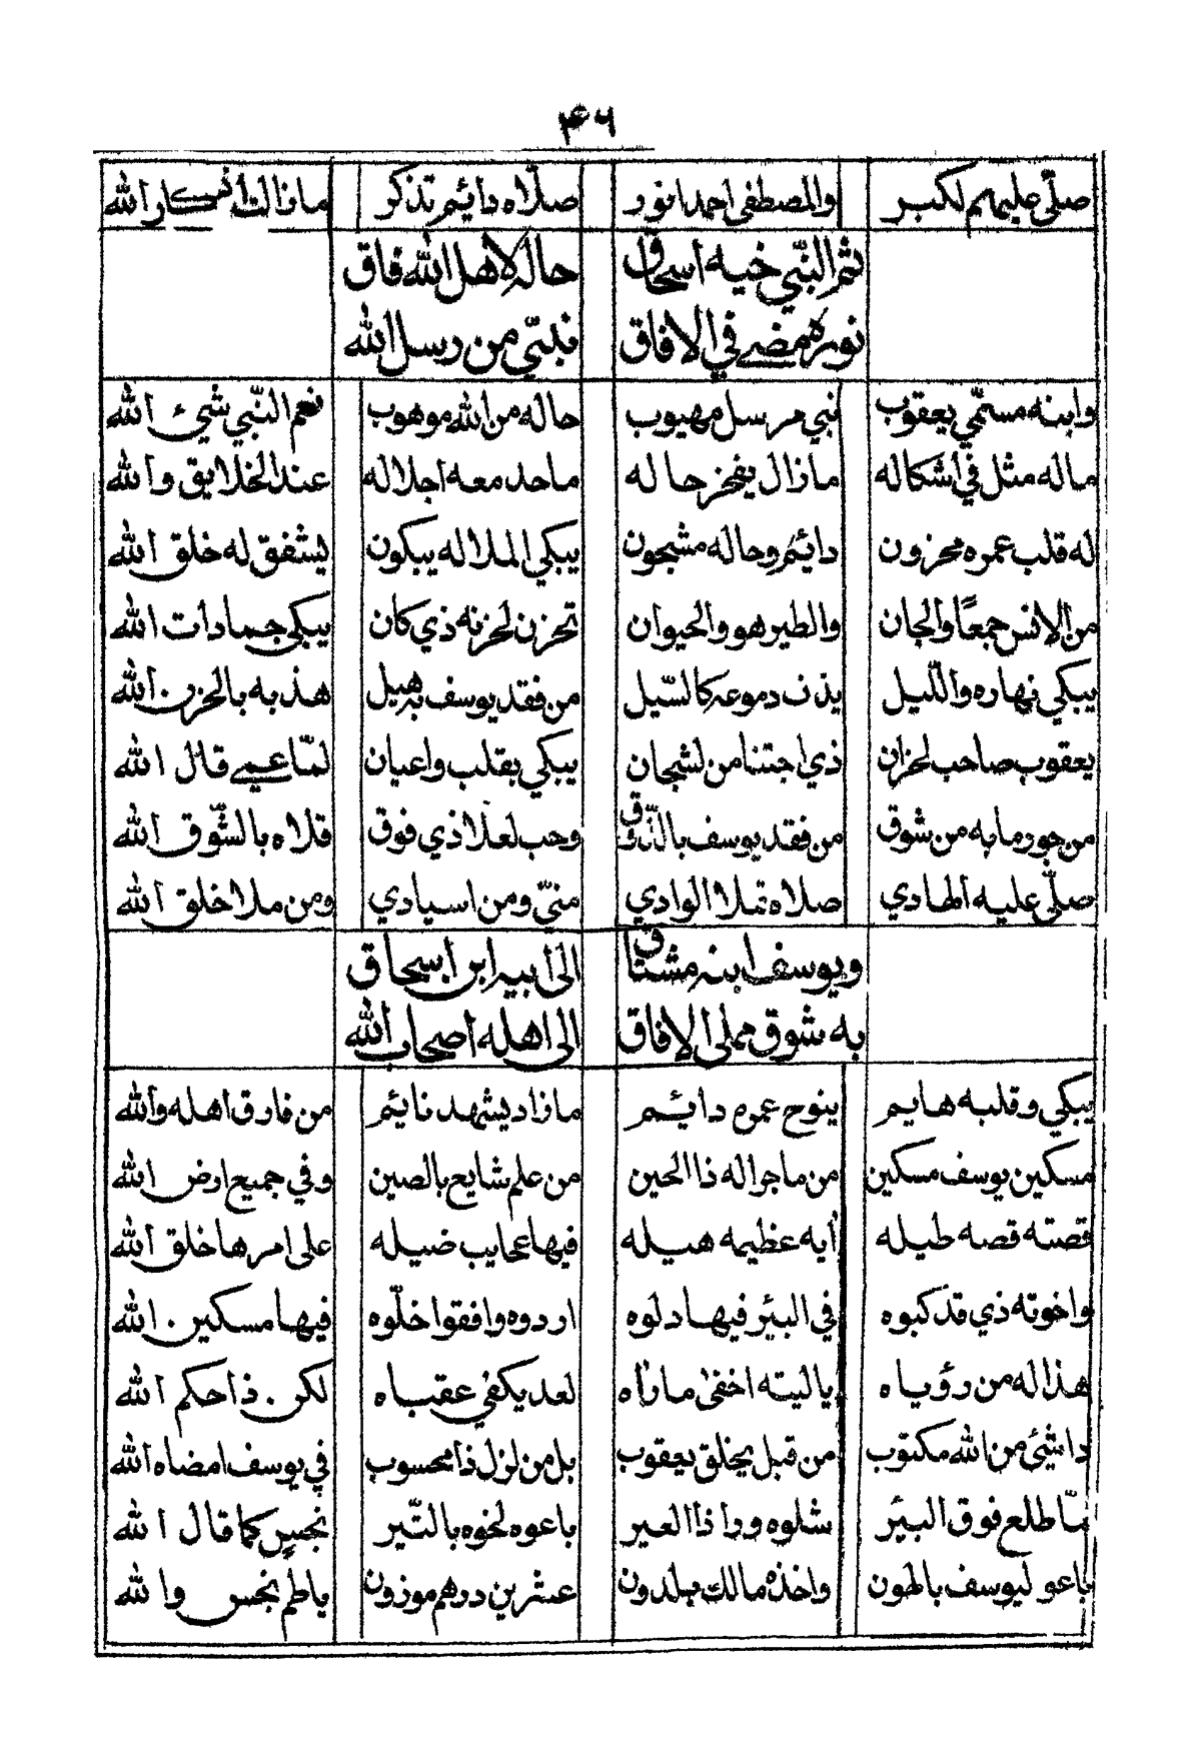 ٤٦
صلّي عليهم لكبر والمصطفى احمد انور صلاه دايئم تذكر مازالت افكار الله
ثم النبّي خيه اسحاق حاله لاهل الله فاق
نوره مضي في الافاق نبيّ من رسل الله
وابنه مسمّي يعقوب نبي مرسل مهيوب حاله من الله موهوب نعم النّبي شيء الله
ماله مثل في اشكاله مازال يفخر حاله ماحد معه اجلاله عند الخلايق والله
له قلب عمره محزون دايئم وحاله مشجون يبكي الملا له يبكون يشفق له خلق الله
من الانس جمعًا والجان والطير هو والحيوان تحزن لحزنه ذي كان يبكي جمادات الله
يبكي نهاره واللّيل يذن دموعه كالسّيل من فقد يوسف به هيل هذبه بالحزن الله
يعقوب صاحب لحزان ذي اجتنا من لشجان يبكي بقلب واعيان لمّا عمي قال الله
من جور مابه من شوق من فقد يوسف وحب لعلا ذي فوق قلاه بالشّوق الله
صلّي عليه الهادي صلاه تملا الوادي منيّ ومن اسيادي ومن ملا خلق الله
ويوسف ابنه مشتاق الى ابيه ابن اسحاق
به شوق مملي الافاق الى اهله اصحاب الله
يبكي وقلبه هايم ينوح عمره دايئم مازاد يشهد نايئم من فارق اهله والله
مسكين يوسف مسكين من ماجرا له ذا الحين من علم شايع بالصين وفي جميع ارض الله
قصته قصه طيله ايه عظيمه هيله فيها عجايب ضيله على امرها خلق الله
واخوته ذي قد كبوه في البئر فيها دلوه اردوه وافقوا خلّوه فيها مسكين الله
هذا له من رؤياه ياليته اخفى ماراه لعد يكفي عقباه لكن ذا حكم الله
داشيئ من الله مكتوب من قبل يخلق يعقوب بل من لزل ذا محسوب في يوسف امضاه الله
مّا طلع فوق البئر شلوه ورا ذا العير باعوه لخوه بالتّير بخس كما قال الله
باعو ليوسف بالهون واخذه مالك بلدون عشرين درهم موزون ياطم بخس والله